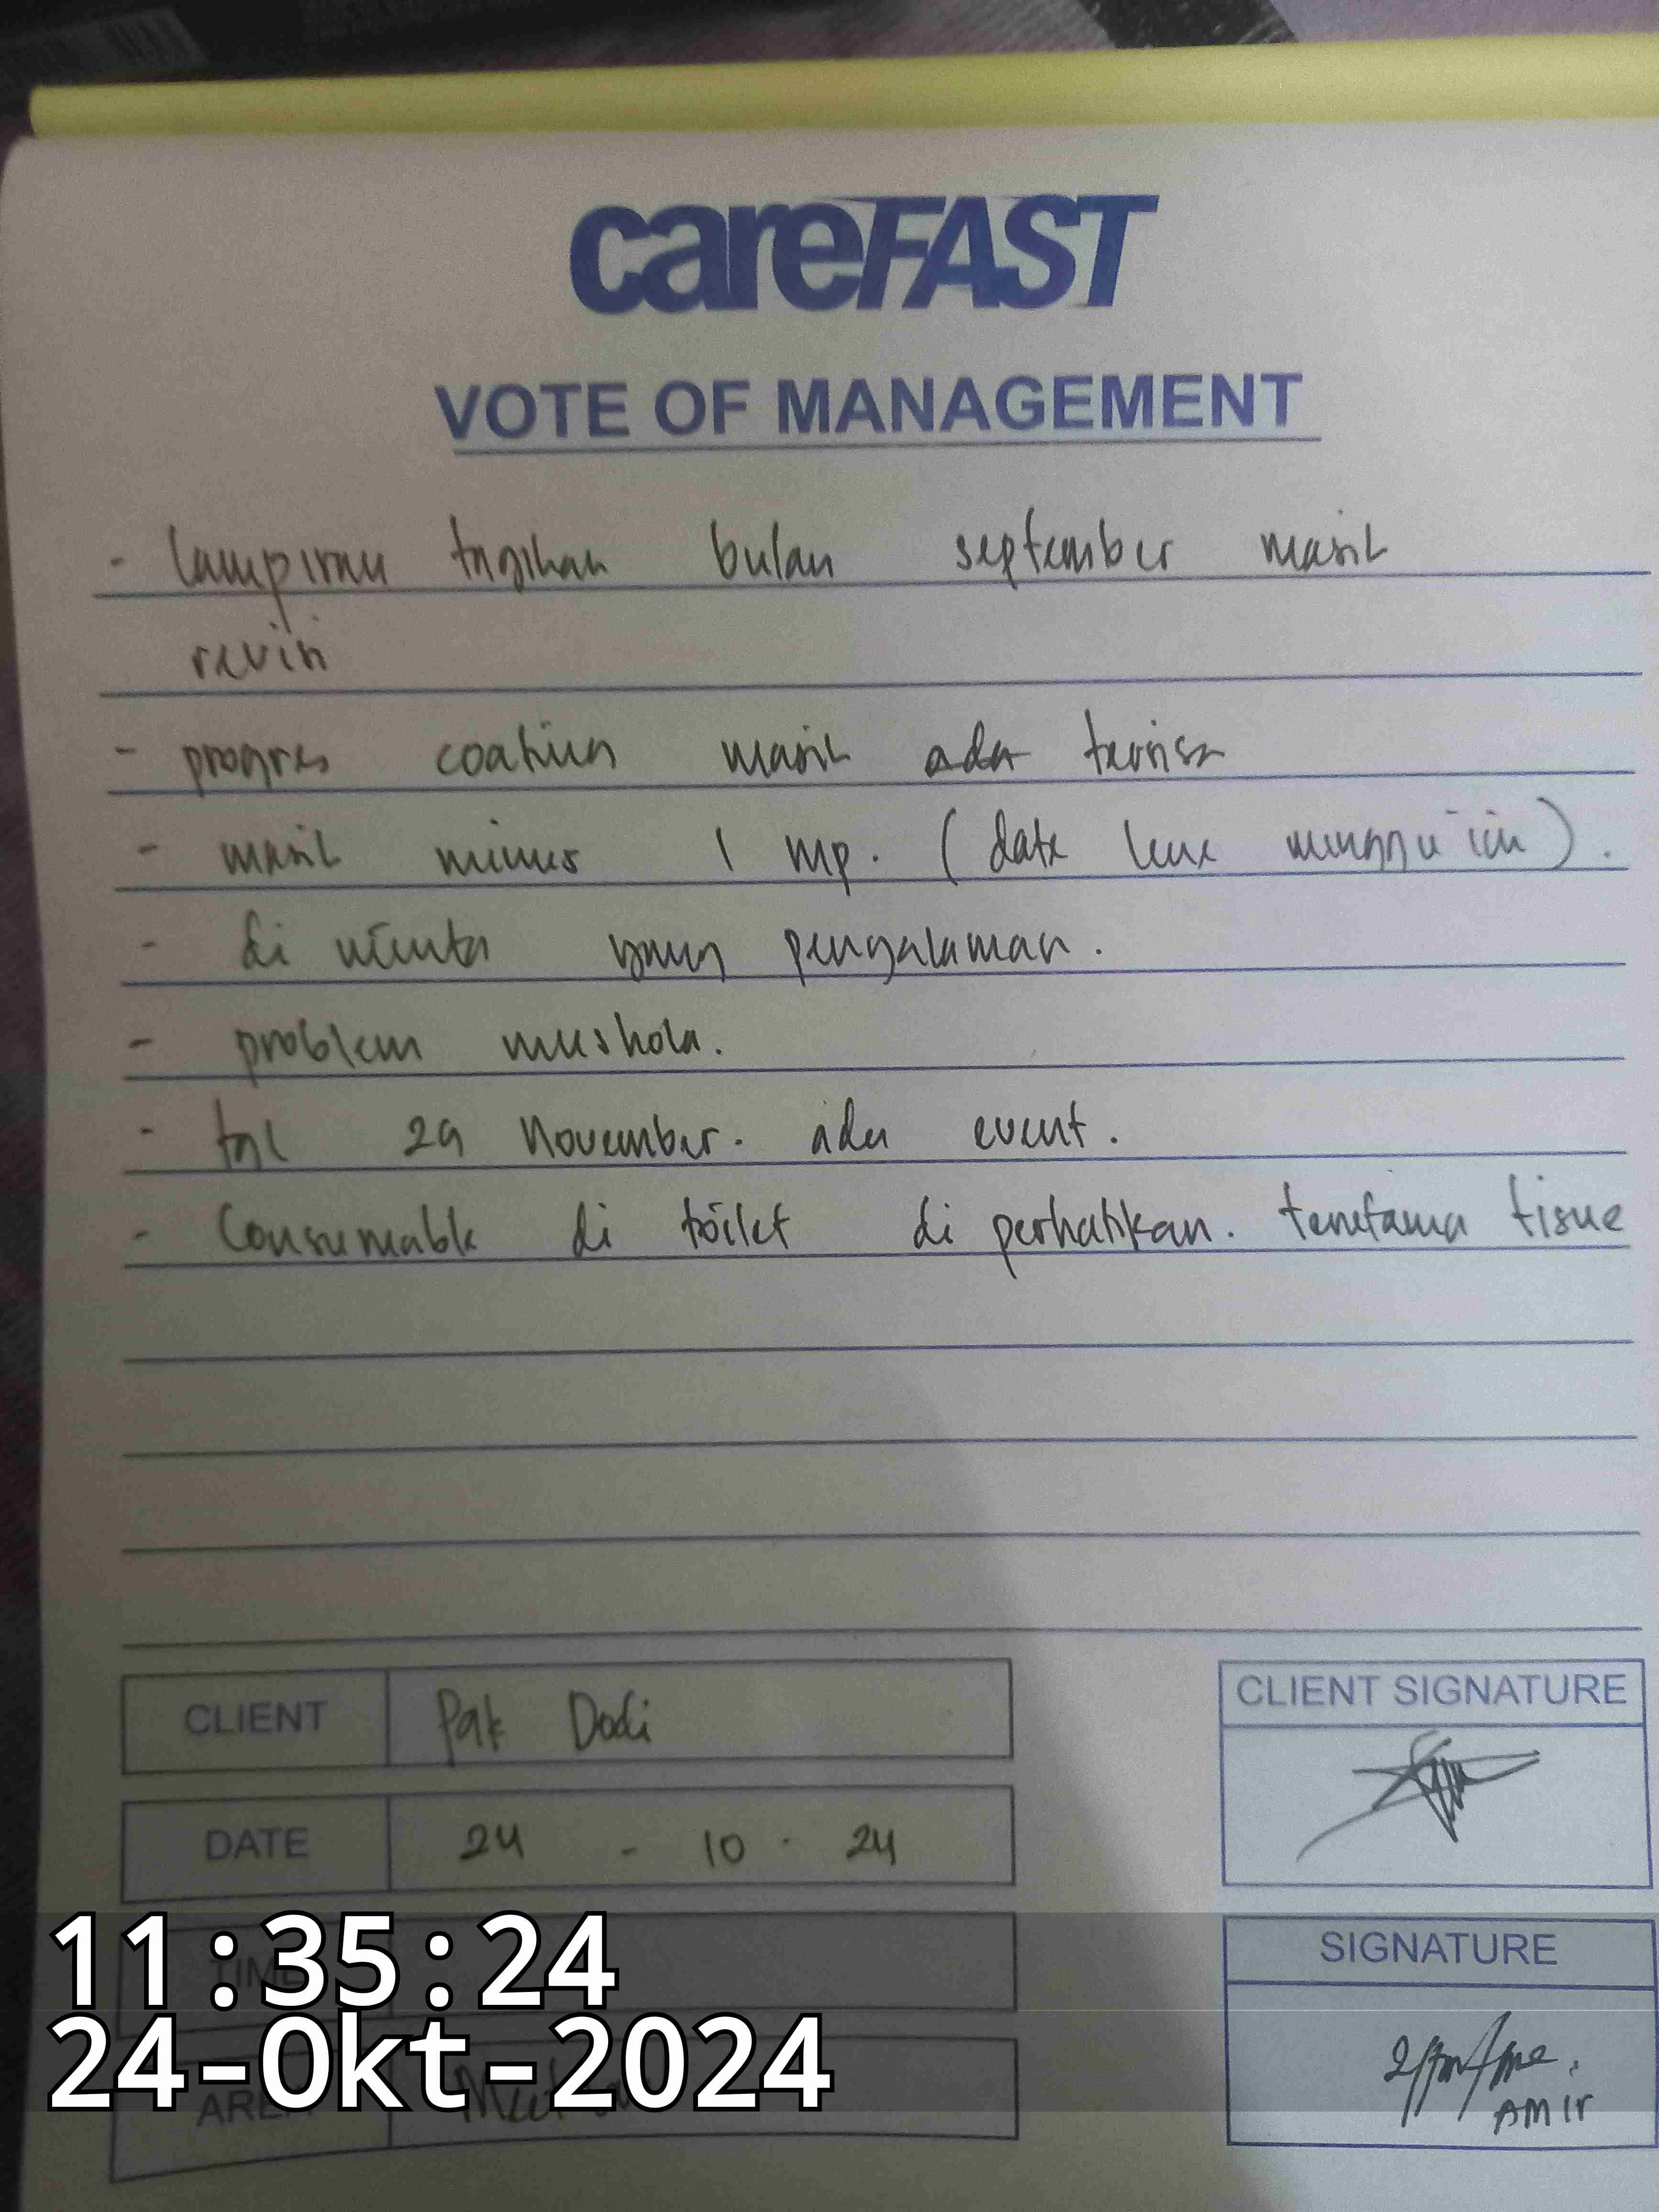 careFAST
VOTE OF MANAGEMENT
- lampiran tagihan bulan september masih
revisi
- progres coating masih ada
- masih minus 1 mp. (date line minggu ini).
- di minta yang pengalaman.
- problem mushola.
- tgl 29 November. ada event.
- Consumable di toilet di perhatikan. terutama tisue
CLIENT Pak Dodi
CLIENT SIGNATURE
DATE 24 - 10 - 24
TIME
11:35:24
SIGNATURE
24-Okt-2024
AREA
AMIR